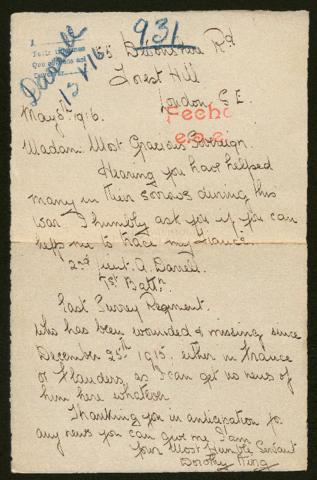 931
Darrell
13/5/16
55 Devonshire Rd
Forest Hill
London, S.E.
Fecha
May 5th 1916.
Madam Most Gracious Sovereign.
Hearing you have helped
many in their sorrows during this
war. I humbly ask you if you can
help me to trace my fiancé
2nd Lieut. A. Darrell.
7st Battn.
East Surrey Regiment.
who has been wounded & missing since
December 25th 1915. either in France
or Flanders, as I can get no news of
him here whatever.
Thanking you in anticipation for
any news you can give me I am
Your Most Humble Servant
Dorothy King